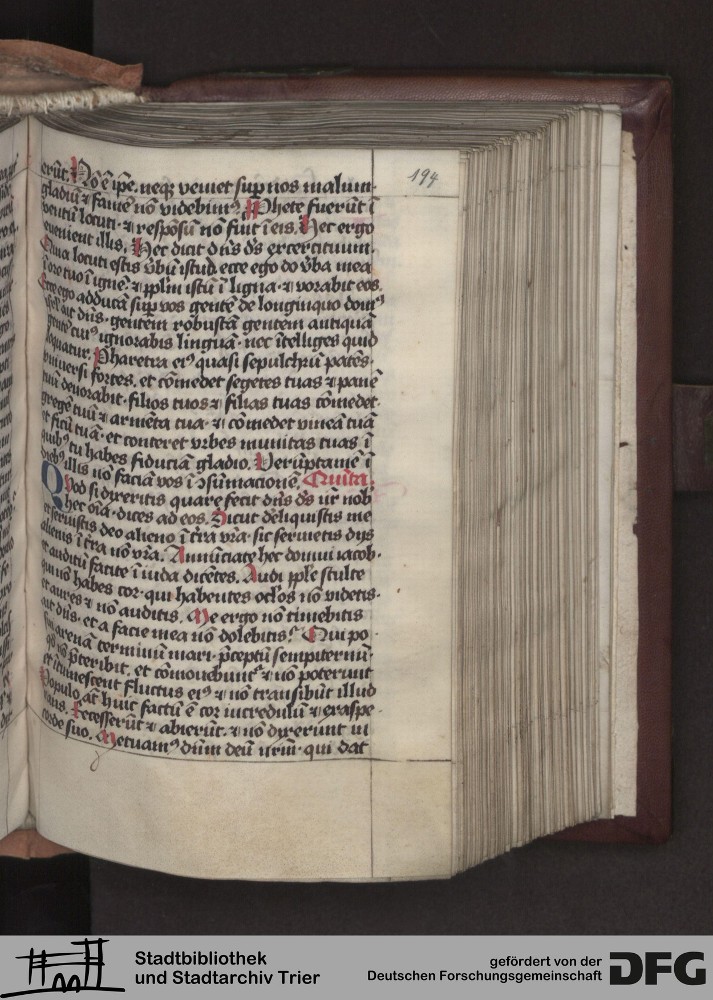 194
erūt. Nō ē ip̄e. neqꝫ veniet sup nos malum·
gladiū ⁊ famē nō videbimꝰ. Pphete fuerūt ī
ventū locuti · ⁊ respōsū nō fuit ī eis. Hec ergo
evenient illis. Hec dicit dn̄s ds̄ exercituum.
Quia locuti estis v̄bū istud ecce ego do v̄ba mea
ī ore tuo ī ignē. ⁊ pplm̄ istū ī ligna · ⁊ vorabit eos.
Ecce ego adducā sup vos gentē de longinquo domꝰ
isrl̄ ait dn̄s · gentem robustā gentem antiquā
gentē cuiꝰ ignorabis linguā · nec ītelliges quid
loquatur. Pharetra eiꝰ quasi sepulchrū patēs ·
universi fortes. et cōmedet segetes tuas ⁊ panē
tuū devorabit · filios tuos ⁊ filias tuas cōmedet·
gregē tuū ⁊ armēta tua · ⁊ cōmedet vineā tuā
et ficū tuā · et conteret vrbes munitas tuas ī
quibꝰ tu habes fiduciā gladio. Verūptamē ī
diebꝰ illis nō faciā vos ī ↄsūmacionē. Quīta.
Quod si dixeritis quare fecit dn̄s ds̄ nr̄ nob
hec oīa · dices ad eos. Sicut deliquistis me
et servistis deo alieno ī t̄ra vr̄a · sic servietis dijs
alienis ī t̄ra nō vr̄a. Annūciate hec domui iacob·
et auditū facite ī iuda dicētes. Audi pple stulte
qui nō habes cor · qui habentes oc̄los nō videtis·
et aures ⁊ nō auditis. Me ergo nō timebitis
ait dn̄s · et a facie mea nō dolebitis? Qui po·
sui arenā terminum mari · p̄ceptū sempiternū·
qd̄ nō p̄teribit. et cōmovebuntᷣ ⁊ nō poterunt
et ītumescent fluctus eiꝰ ⁊ nō transibūt illud
Populo at̄ huic factū ē cor incredulū ⁊ exaspe·
rans. Recesserūt ⁊ abierūt. ⁊ nō dixerunt in
corde suo. Metuamꝰ dn̄m deū nr̄m · qui dat
Stadtbibliothek
und Stadtarchiv Trier
gefördert von der
Deutschen Forschungsgemeinschaft
DFG